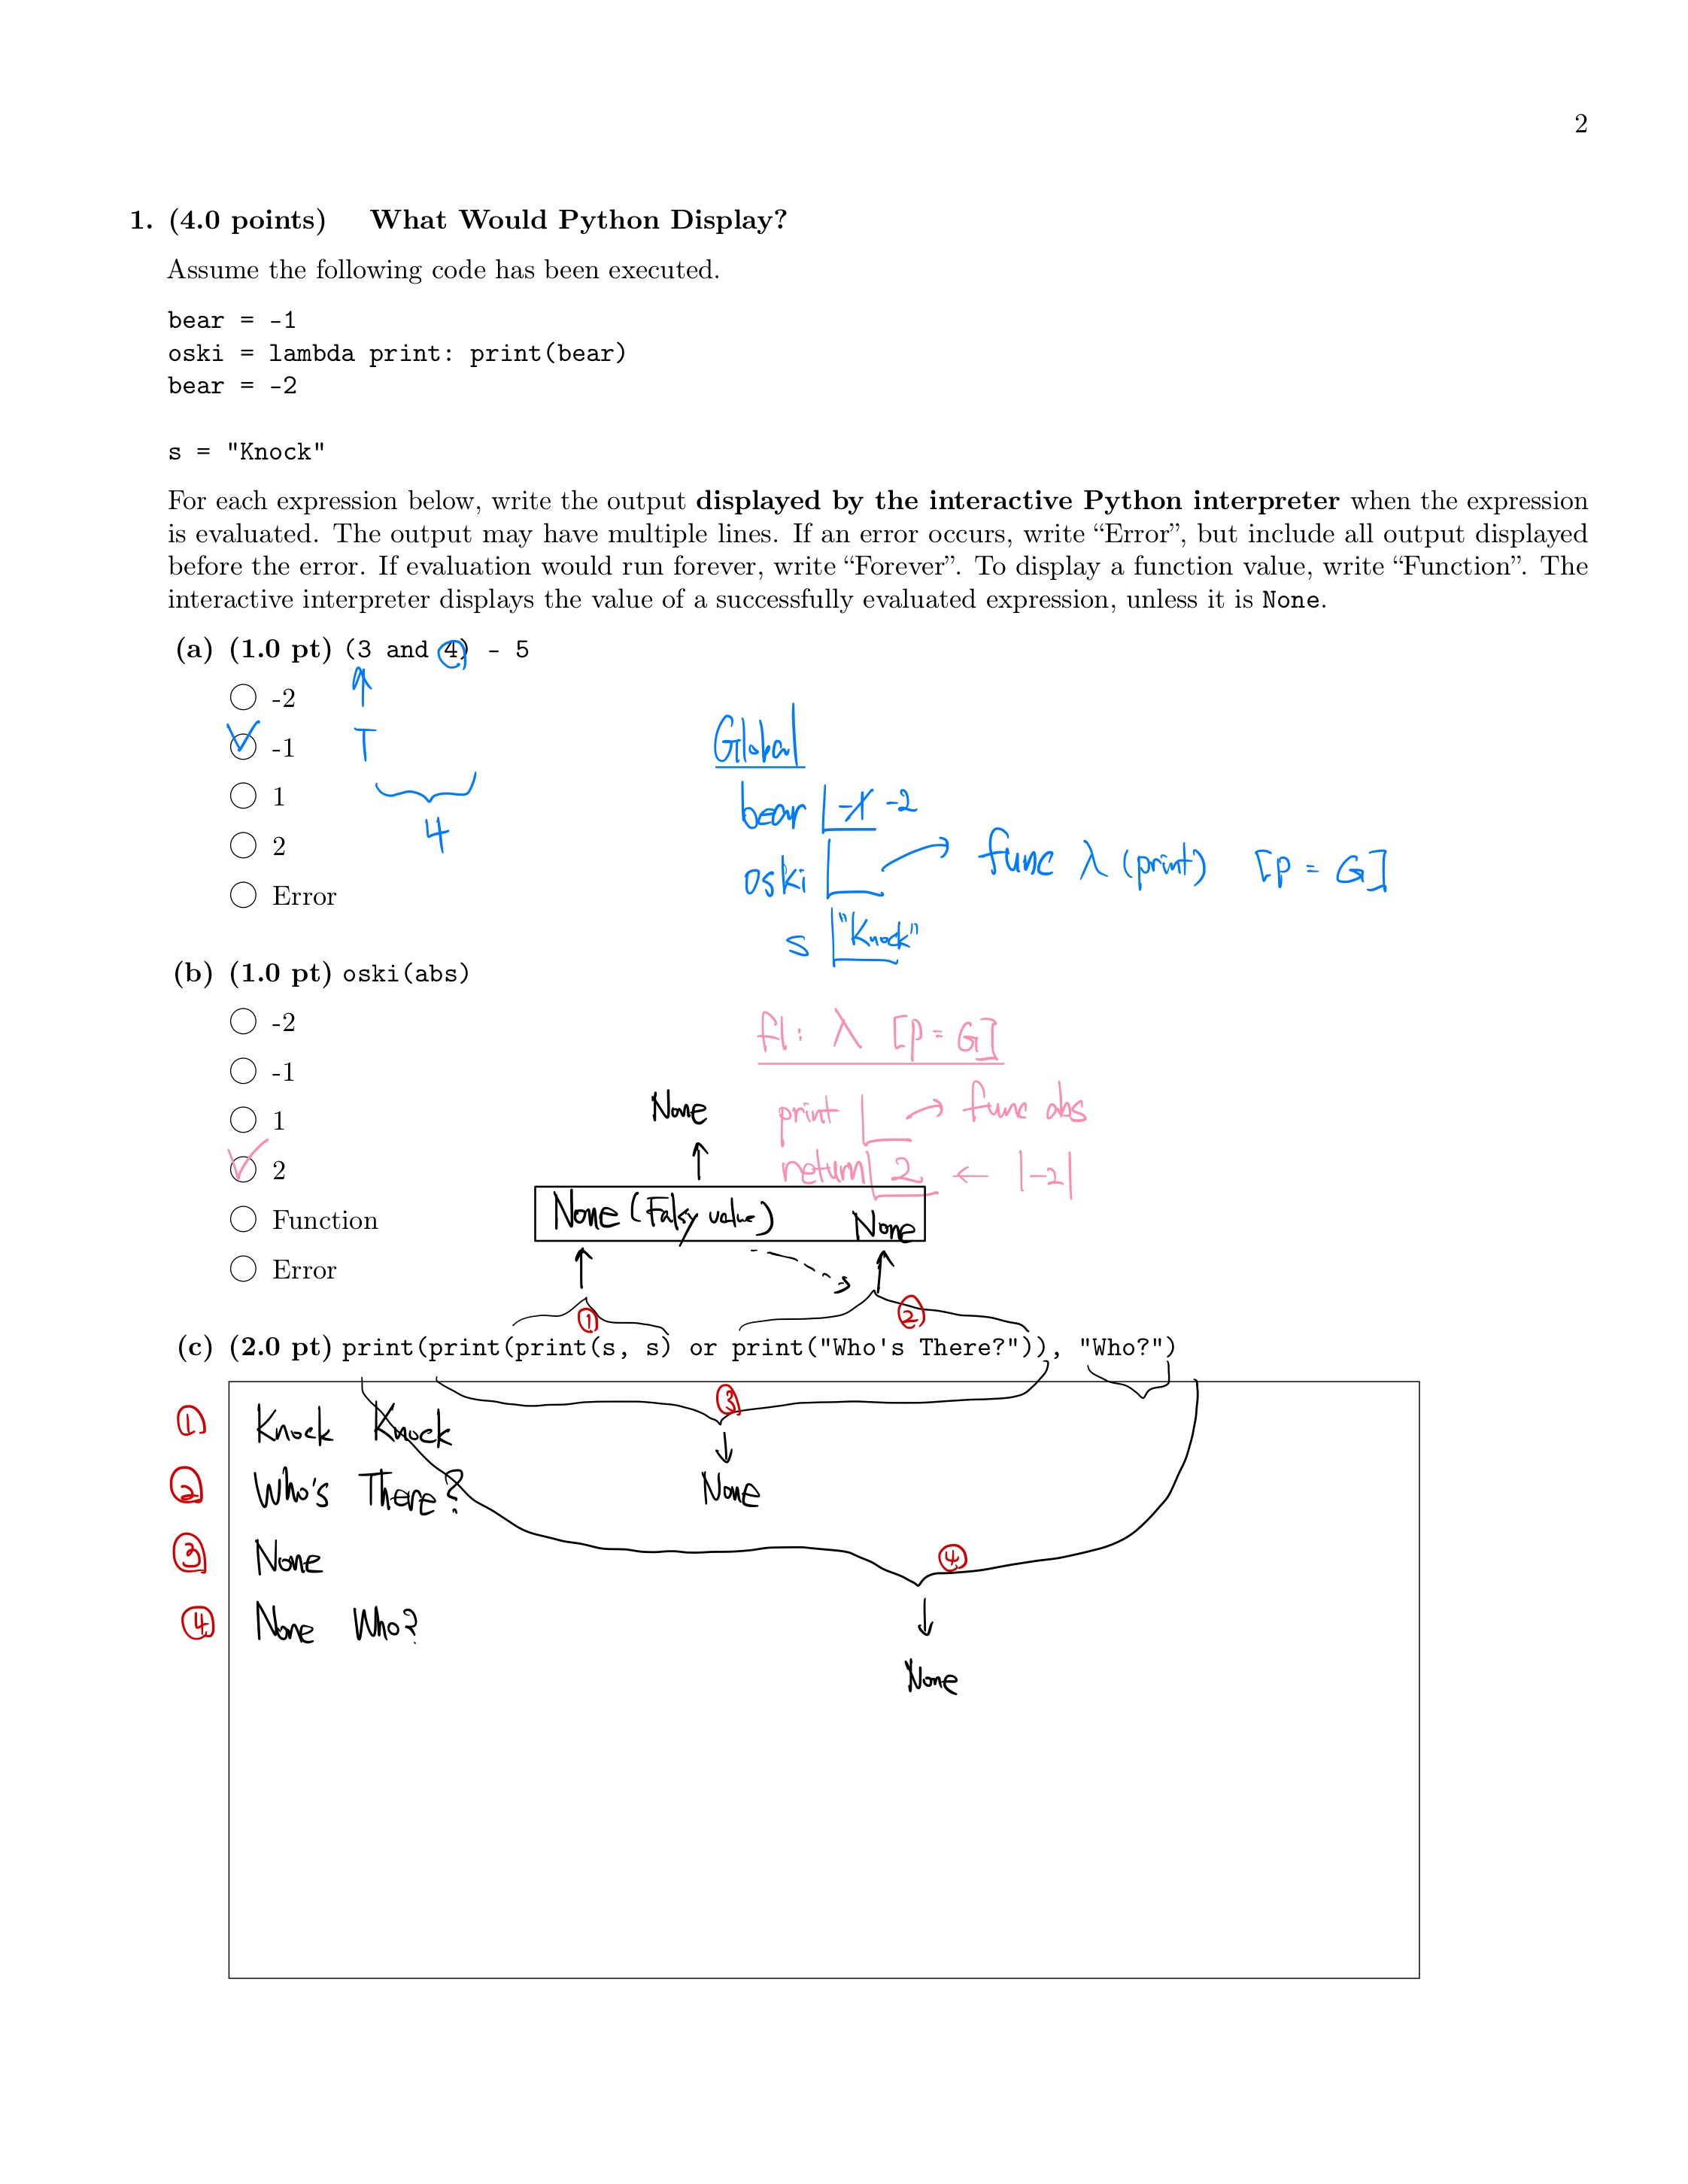 2
1. (4.0 points) What Would Python Display?
Assume the following code has been executed.
bear = -1
oski = lambda print: print(bear)
bear = -2
s = "Knock"
For each expression below, write the output displayed by the interactive Python interpreter when the expression
is evaluated. The output may have multiple lines. If an error occurs, write “Error”, but include all output displayed
before the error. If evaluation would run forever, write “Forever”. To display a function value, write “Function”. The
interactive interpreter displays the value of a successfully evaluated expression, unless it is None.
(a) (1.0 pt) (3 and 4) - 5
-2
-1
T
1
4
2
Error
Global
bear -1 -2
oski → func λ (print) [p = G]
s "Knock"
(b) (1.0 pt) oski(abs)
-2
-1
1
2
Function
Error
f1: λ [p = G]
print → func abs
return 2 ← |-2|
None
None (Falsy value) None
① ②
(c) (2.0 pt) print(print(print(s, s) or print("Who's There?")), "Who?")
③
None
④
None
① Knock Knock
② Who's There?
③ None
④ None Who?